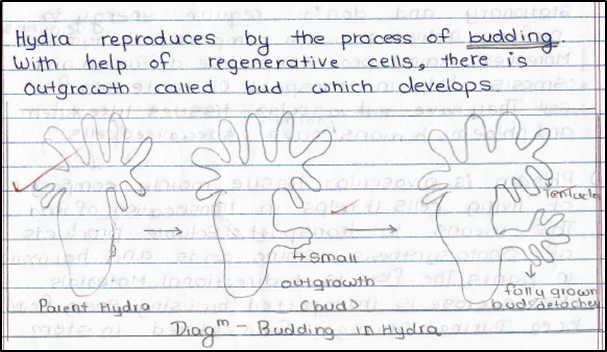 Hydra reproduces by the process of budding
With help of regenerative cells, there is
outgrowth called bud which develops.
Tentacle
small
outgrowth
(bud)
fully grown
bud detaches
Parent Hydra
Diagm - Budding in Hydra